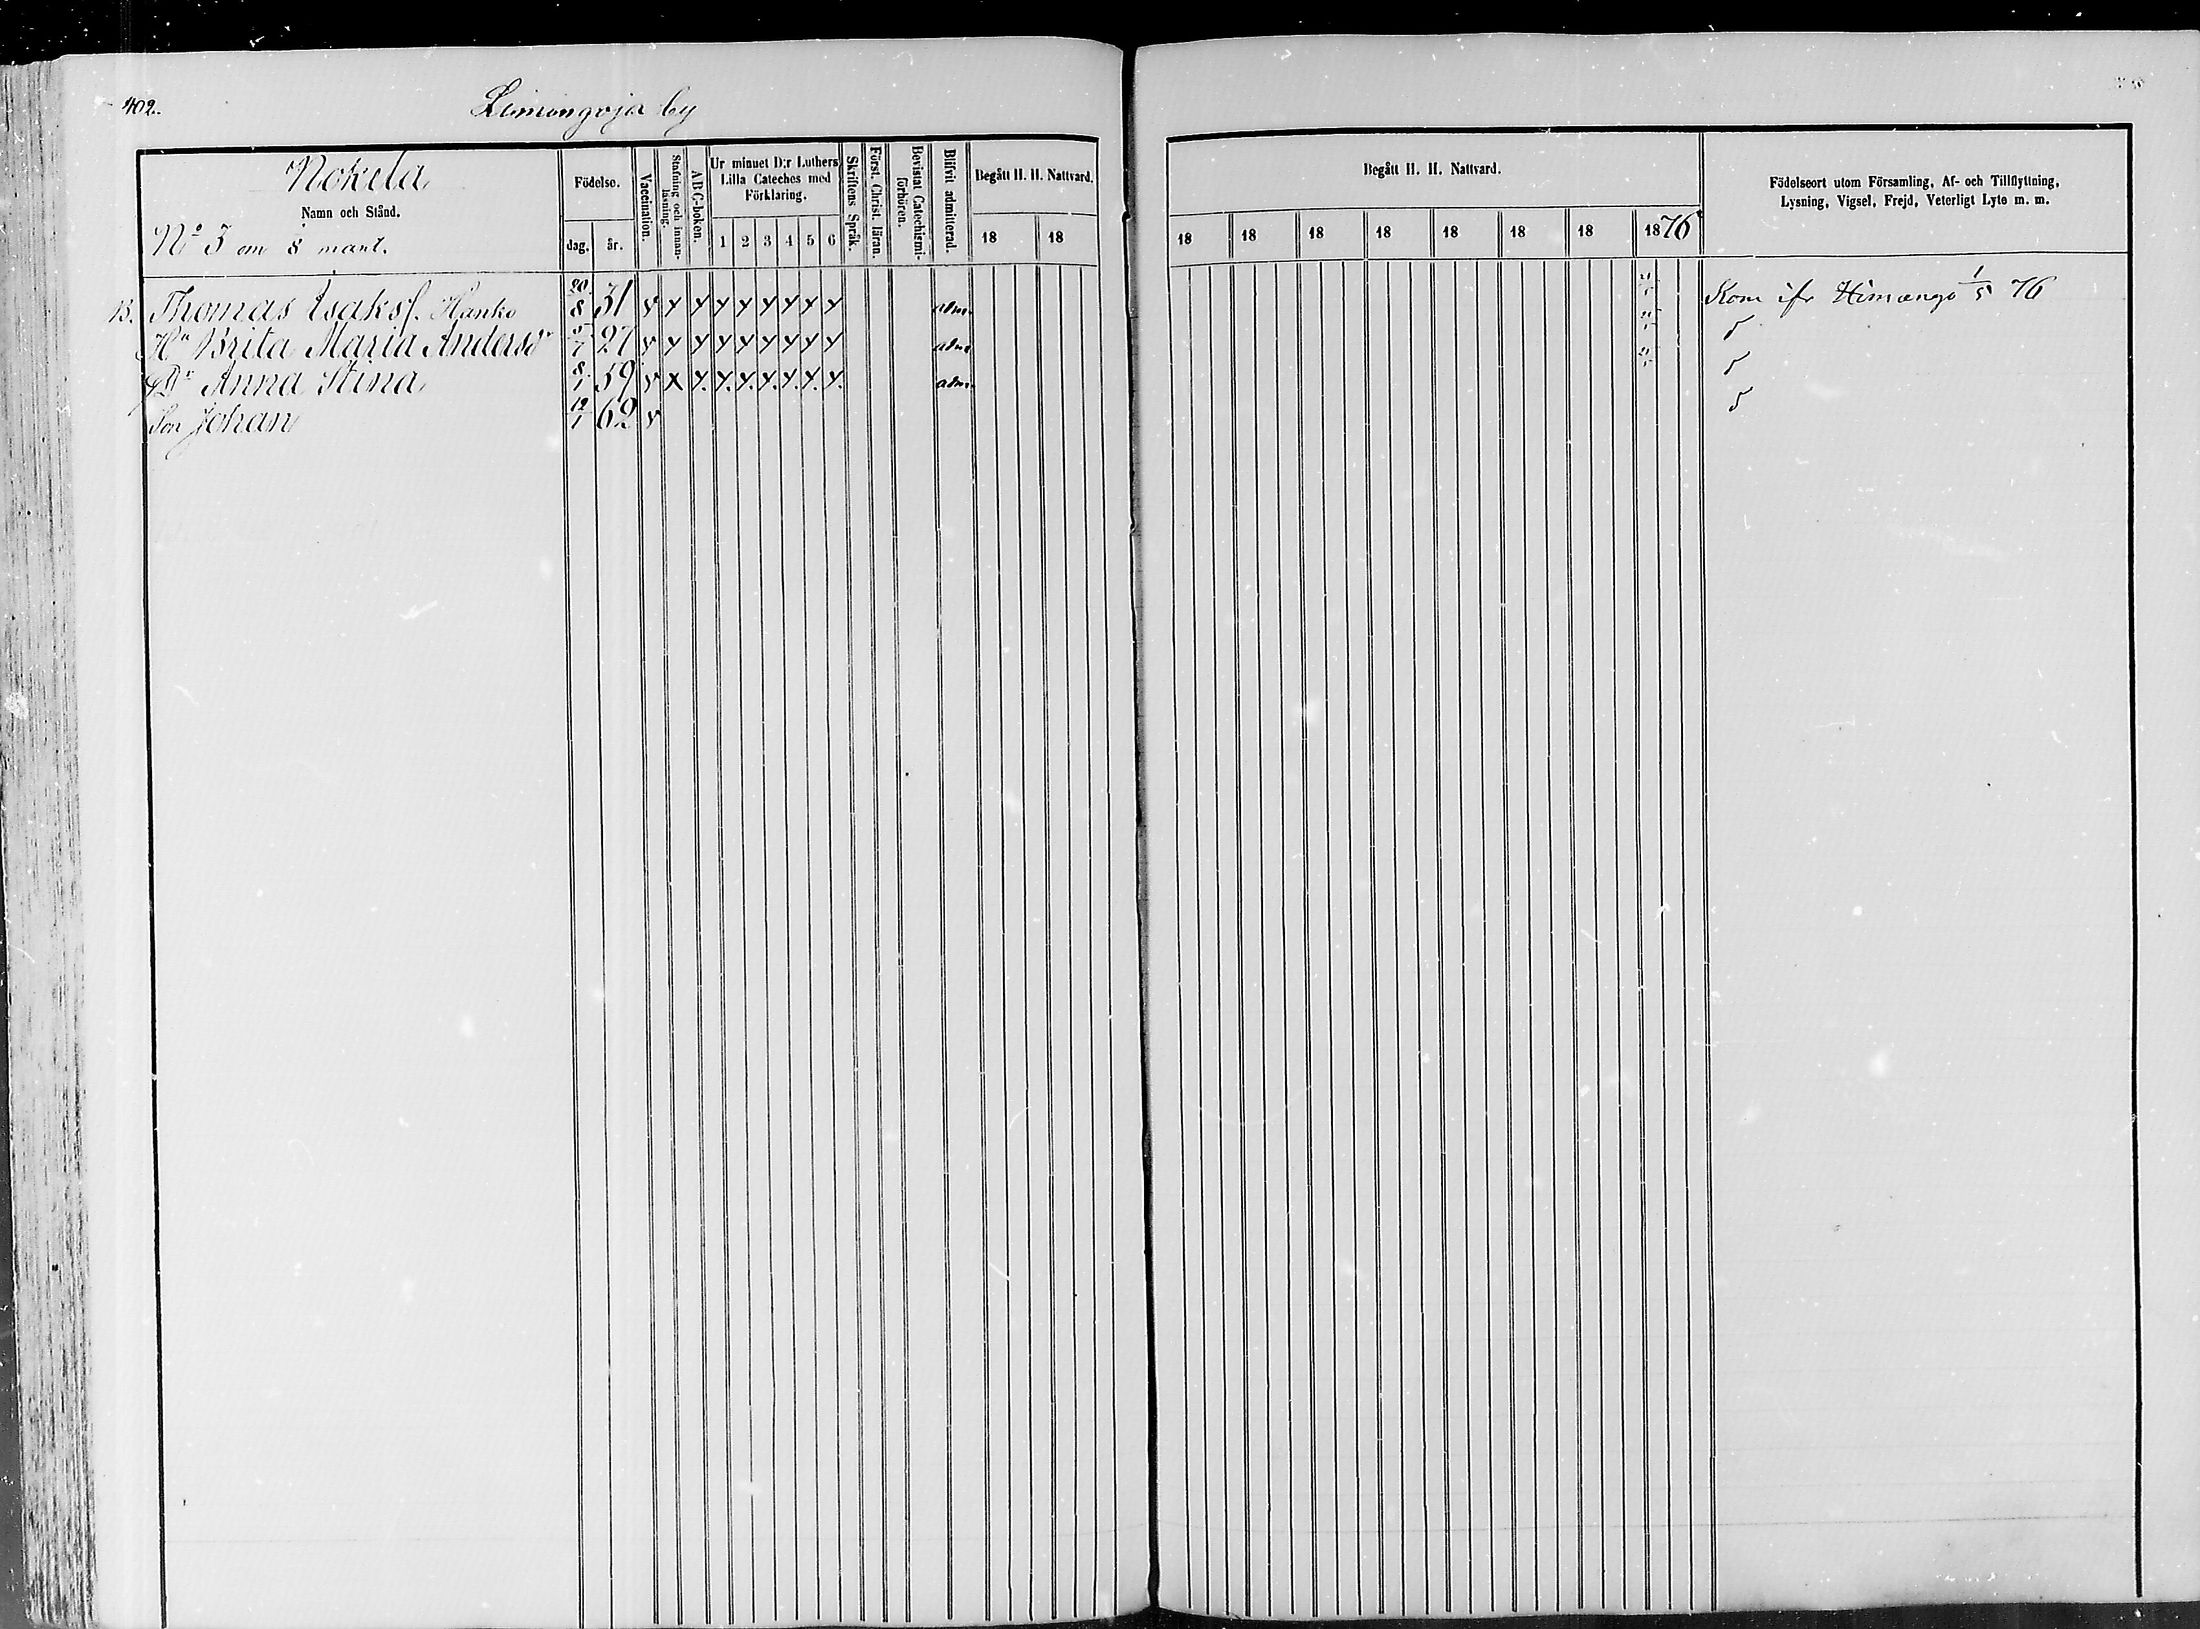 402.
Limingoja by
Nokela
Namn och Stånd.
No 3 om 8 mant.
Födelse.
dag. år.
Vaccination.
Stafning och innanläsning.
ABC-boken.
Ur minnet D:r Luthers Lilla Cateches med Förklaring.
1 2 3 4 5 6
Skriftens Språk.
Först. Christ. läran.
Bevistat Catechismiförhören.
Blifvit admitterad.
Begått H. H. Nattvard.
18 18
Begått H. H. Nattvard.
18 18 18 18 18 18 18 1876
Födelseort utom Församling, Af- och Tillflyttning,
Lysning, Vigsel, Frejd, Veterligt Lyte m. m.
B. Thomas Isaksf. Hanko 20/8 31 v x x x x x x x x adm. Kom ifr Himango 1/5 76
Hu Brita Maria Andersdr 27 v x x x x x x x x adm
Dr Anna Stina 8/1 59 v x x. x. x. x. x. x. x. adm.
Son Johan 12/1 62 v